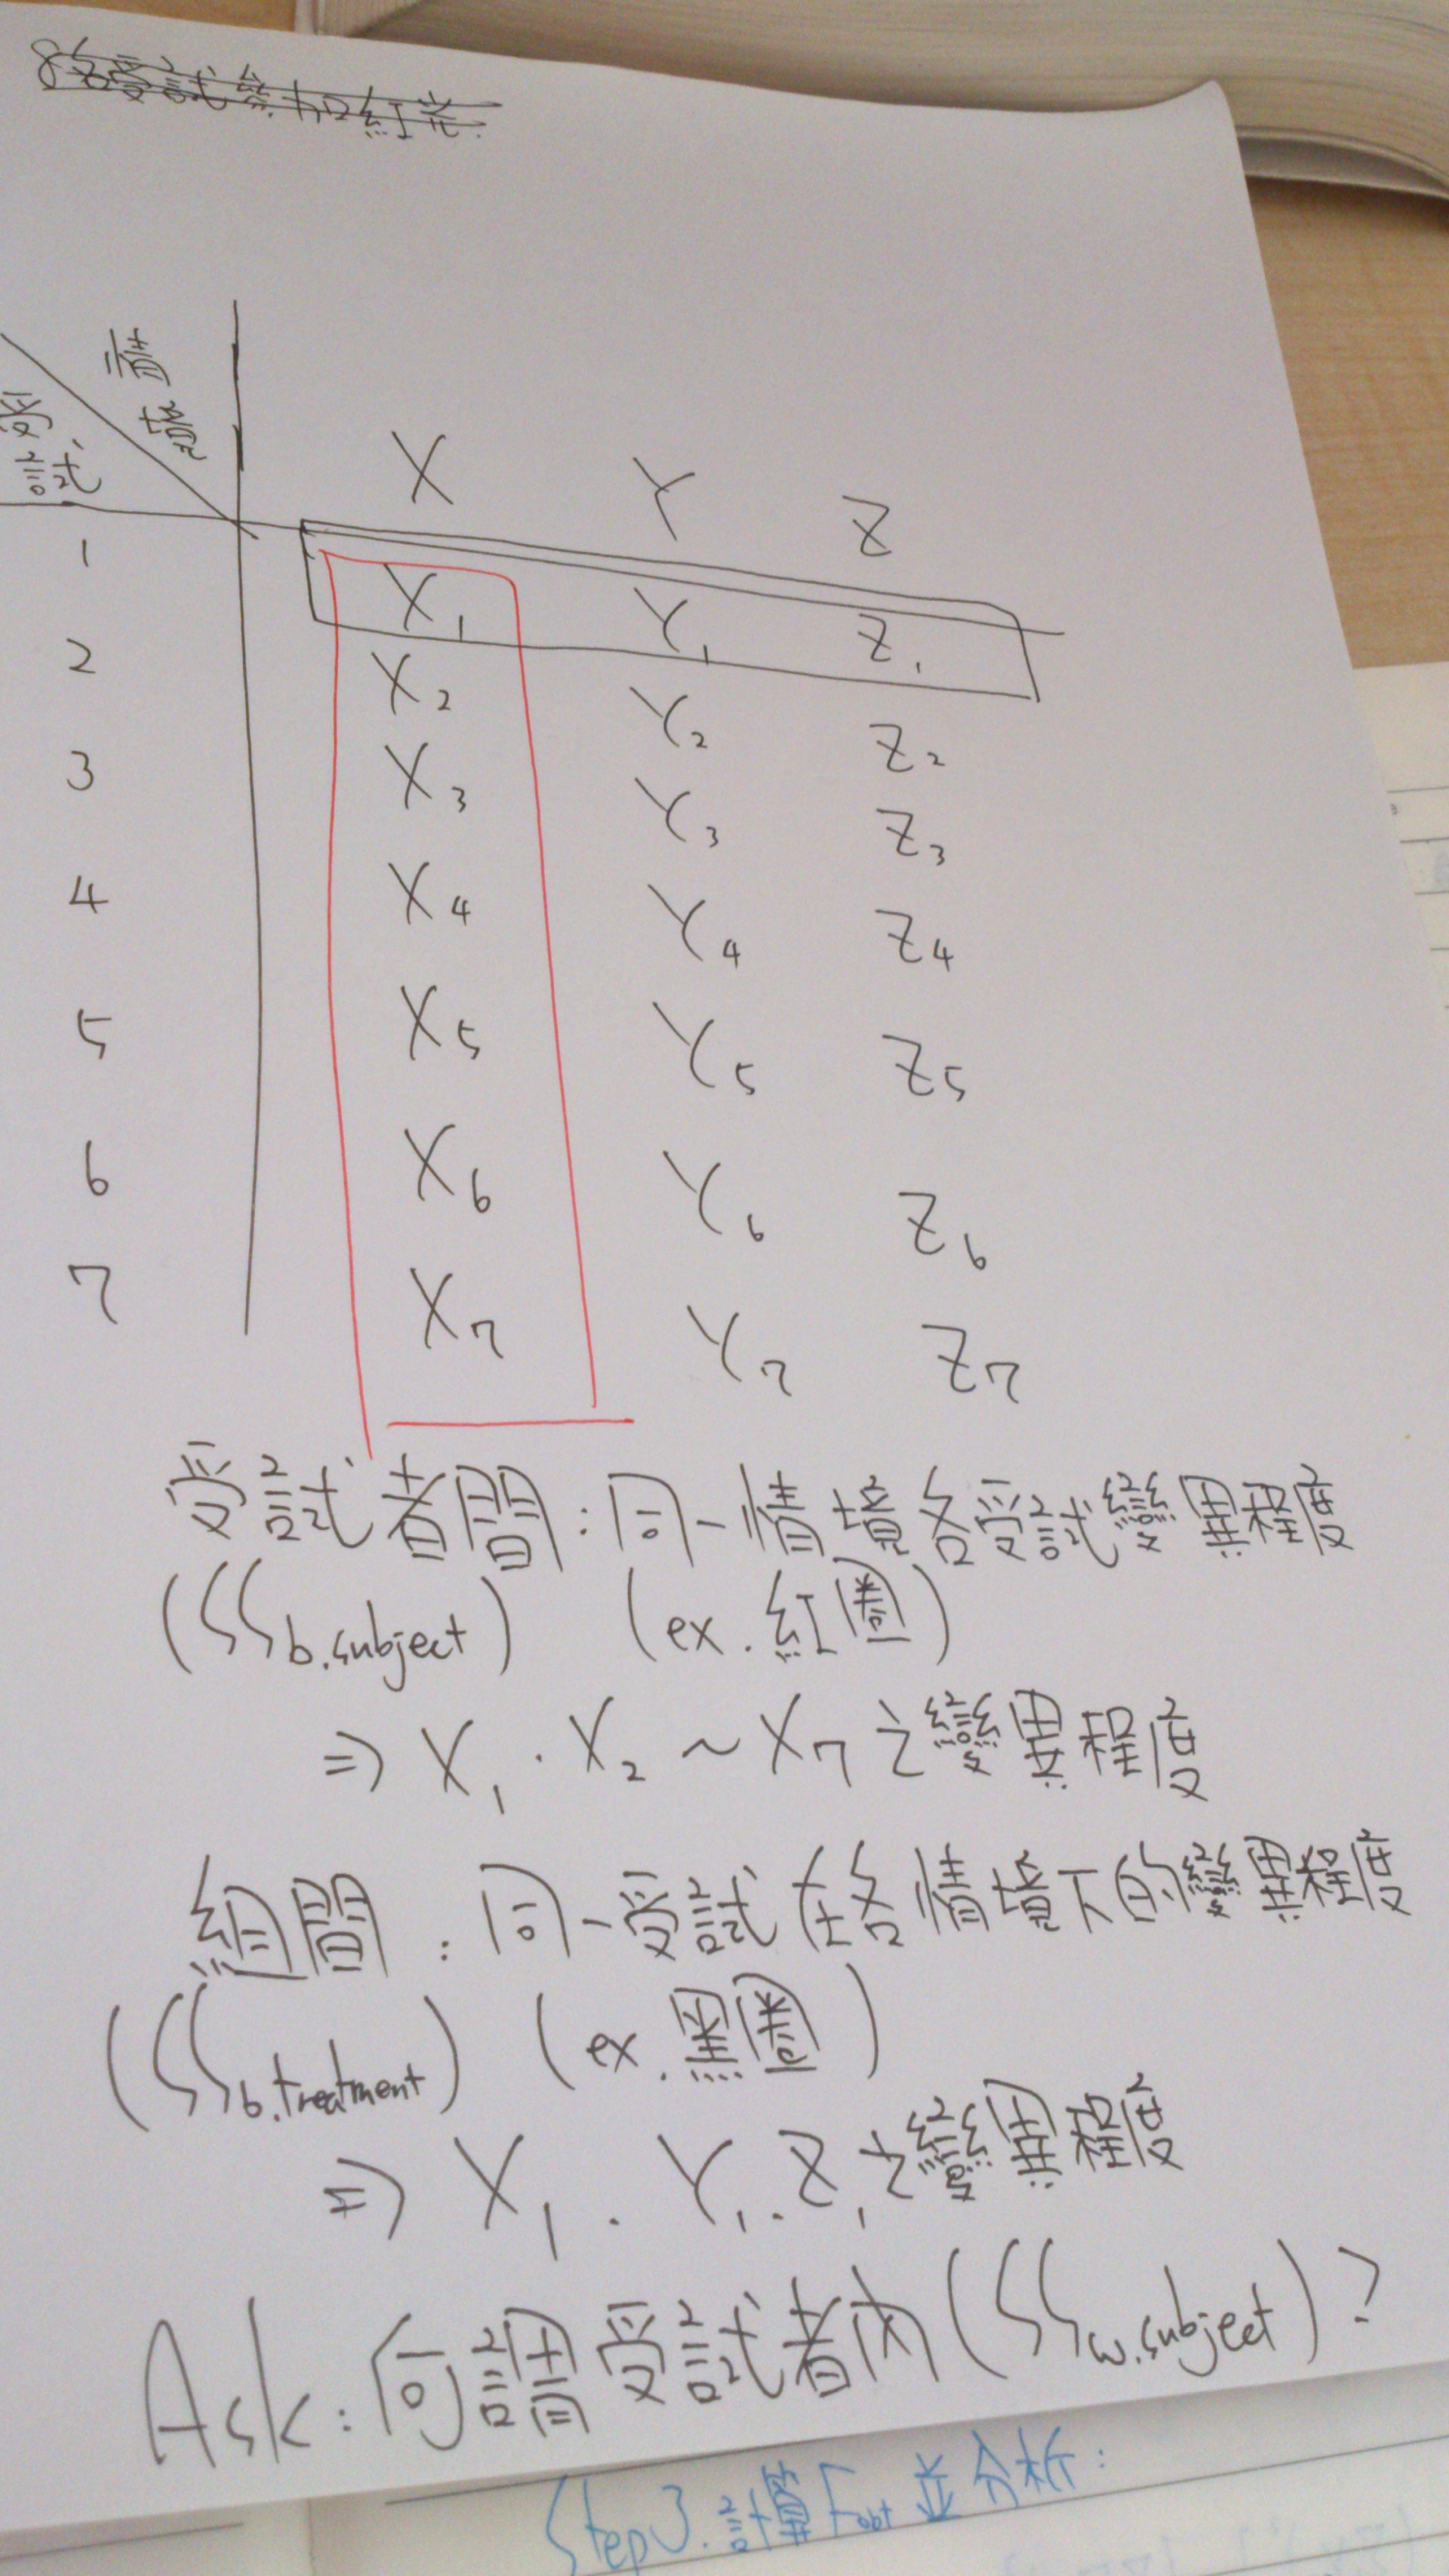 8名受試參加紅光
情境
受試
X Y Z
1 X₁ Y₁ Z₁
2 X₂ Y₂ Z₂
3 X₃ Y₃ Z₃
4 X₄ Y₄ Z₄
5 X₅ Y₅ Z₅
6 X₆ Y₆ Z₆
7 X₇ Y₇ Z₇
受試者間:同一情境各受試變異程度
(SS b.subject) (ex.紅圈)
⇒ X₁.X₂~X₇之變異程度
組間:同一受試在各情境下的變異程度
(SS b.treatment) (ex.黑圈)
⇒ X₁.Y₁.Z₁之變異程度
Ask:何謂受試者內(SS w.subject)?
Step3.計算Fobt並分析: